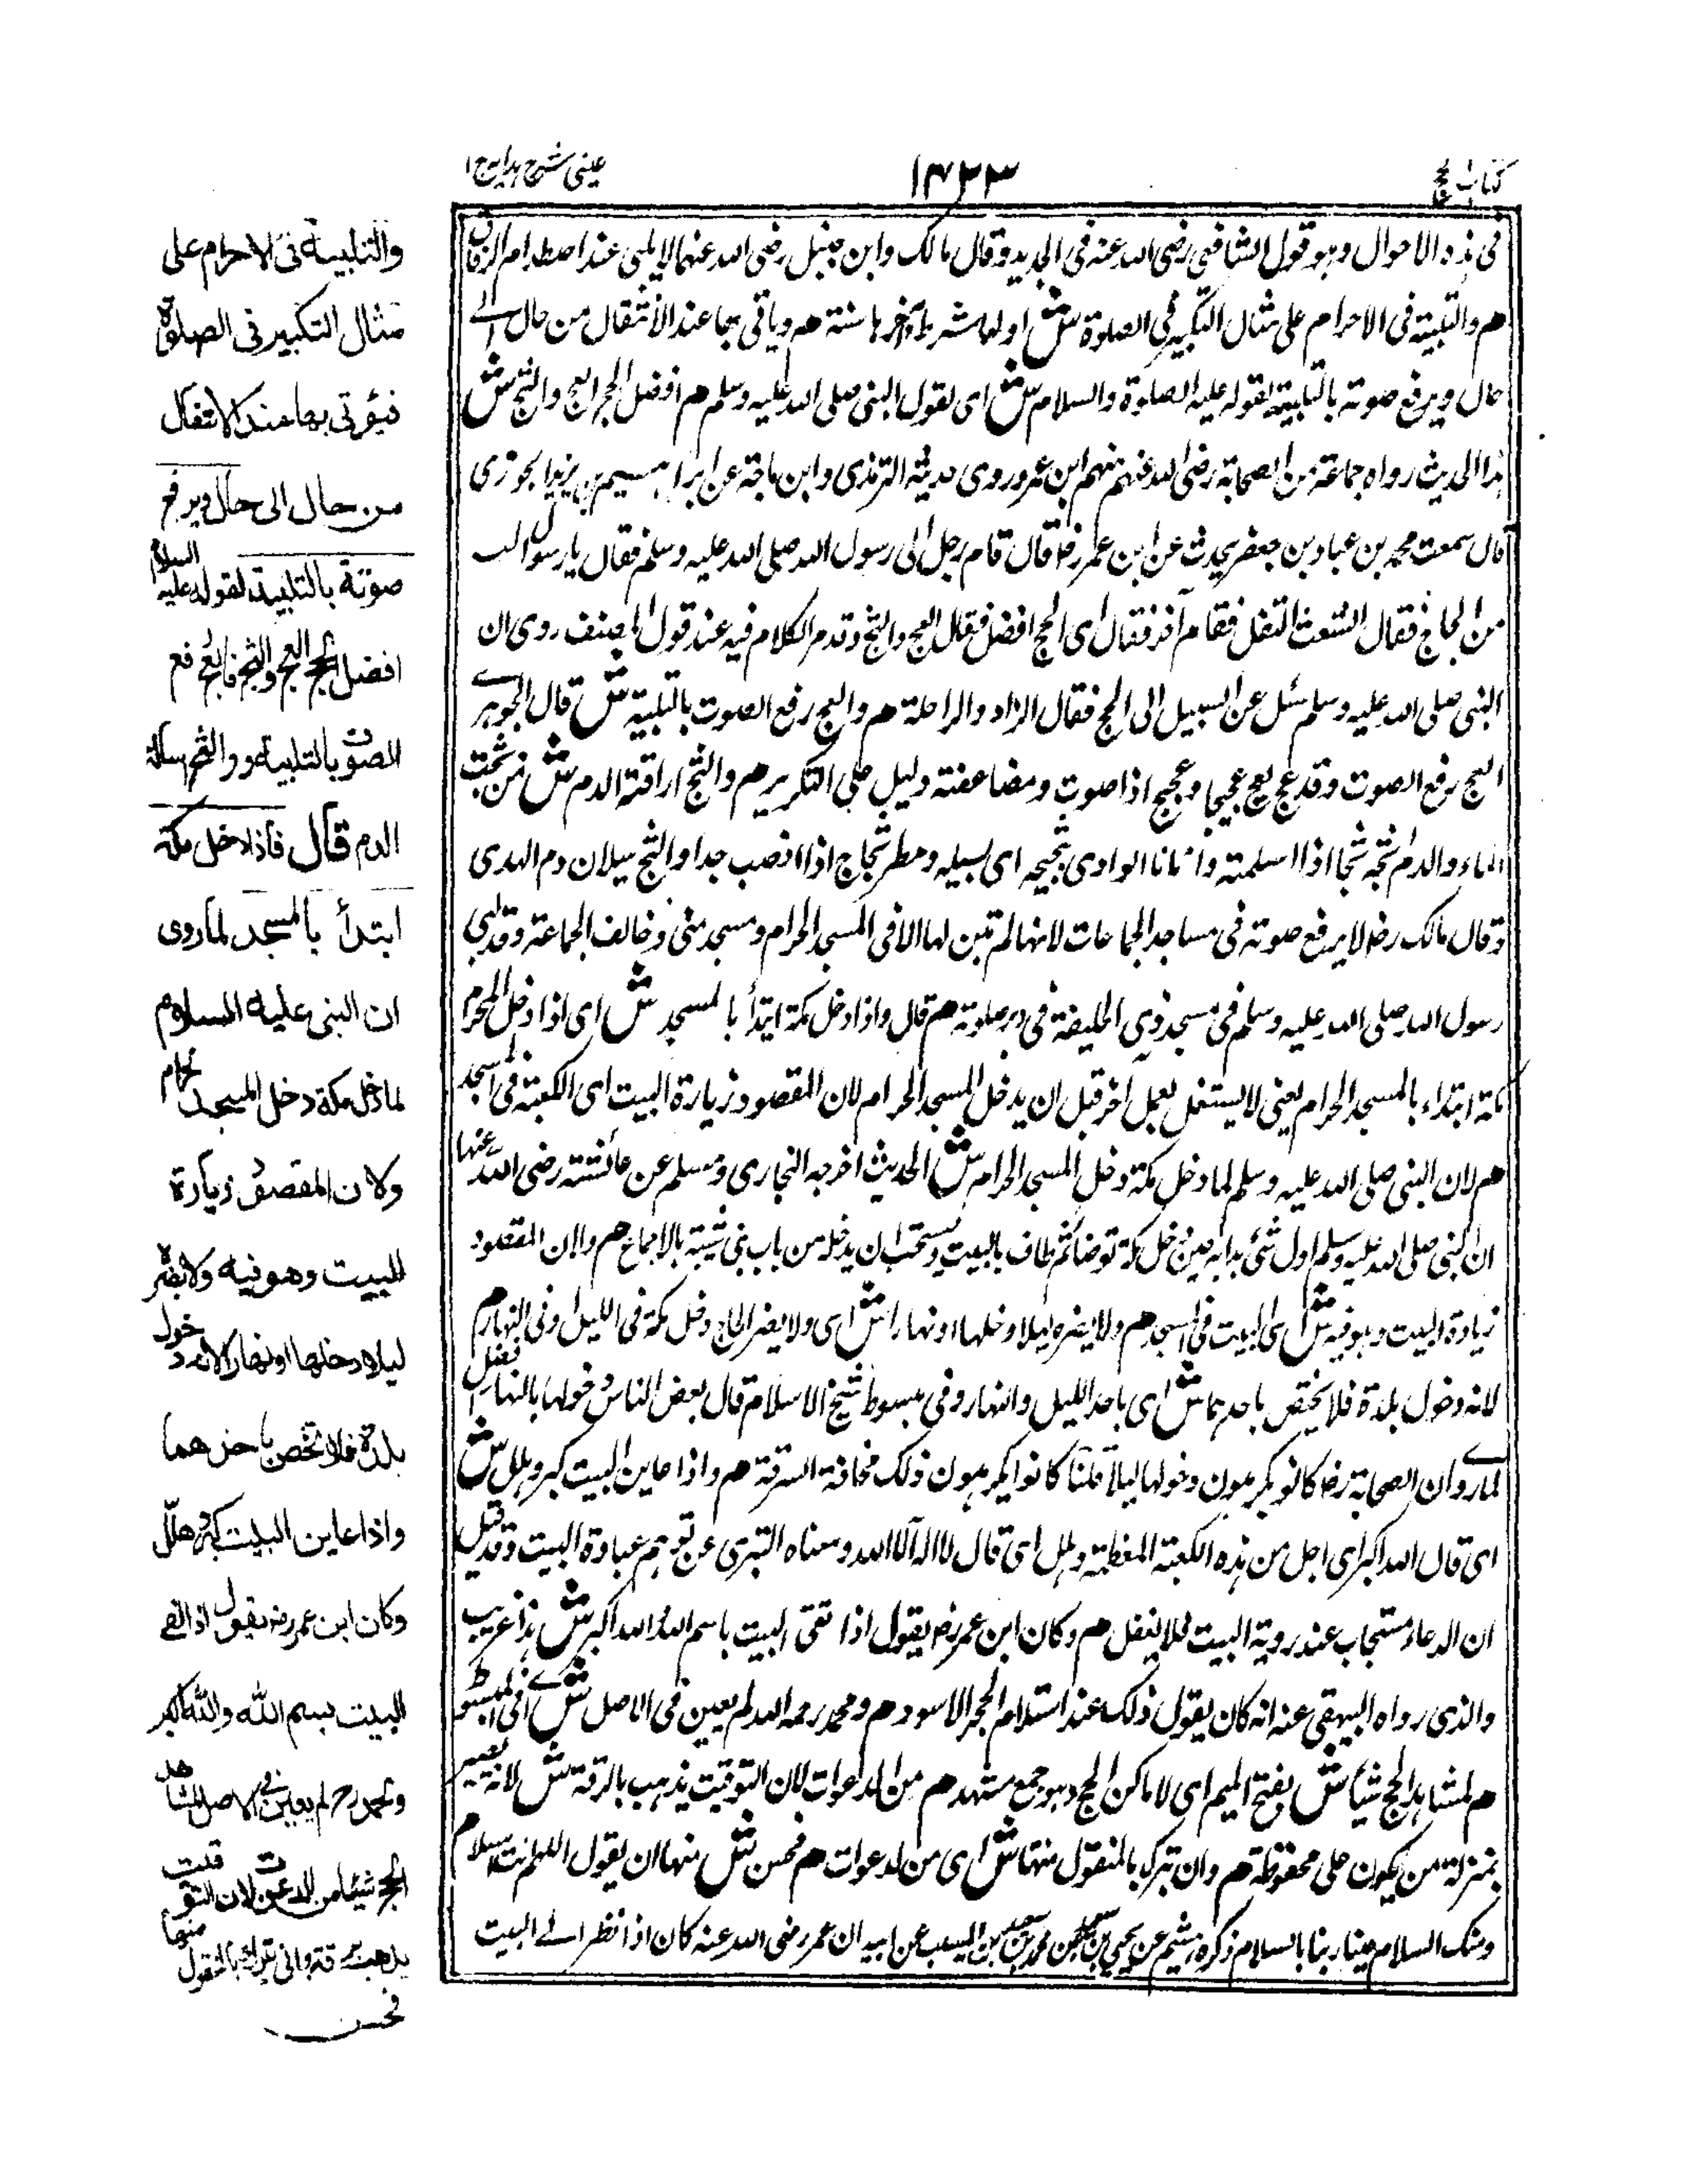 كتاب الحج
١٤٢٣
عينى شرح هدايه ج ١
فى هذه الاحوال وهو قول الشافعى رضى الله عنه فى الجديد وقال مالك وابن حنبل رضى الله عنهما لا يلبى عند اصطدام الرفاق
هم والتلبية فى الاحرام على مثال التكبير فى الصلوة ش اولها شرط وآخرها سنة هم وياتى بها عند الانتقال من حال الى
حال ويرفع صوته بالتلبية لقوله عليه الصلوة والسلام ش اى لقول النبى صلى الله عليه وسلم هم افضل الحج العج والثج ش
هذا الحديث رواه جماعة من الصحابة رضى الله عنهم منهم ابن عمر وروى حديثه الترمذى وابن ماجة عن ابراهيم بن يزيد الجوزى
قال سمعت محمد بن عباد بن جعفر يحدث عن ابن عمر رض قال قام رجل الى رسول الله صلى الله عليه وسلم فقال يا رسول الله
من الحاج فقال الشعث التفل فقام آخر فقال اى الحج افضل فقال العج والثج وتقدم الكلام فيه عند قول المصنف روى ان
النبى صلى الله عليه وسلم سئل عن السبيل الى الحج فقال الزاد والراحلة هم والعج رفع الصوت بالتلبية ش قال الجوهرى
العج رفع الصوت وقد عج يعج عجيجا وعجيج اذا صوت ومضاعفته دليل على التكرير هم والثج اراقة الدم ش من ثججت
الماء والدم ثجه ثجا اذا اسلمته واتانا الوادى بثجيجه اى بسيله ومطر ثجاج اذا انصب جدا والثج سيلان دم الهدى
وقال مالك رض لا يرفع صوته فى مساجد الجماعات لانها لم تبن لها الا فى المسجد الحرام ومسجد منى وخالف الجماعة وقد لبى
رسول الله صلى الله عليه وسلم فى مسجد ذوى الحليفة فى دبر صلوته هم قال واذا دخل مكة ابتدأ بالمسجد ش اى اذا دخل المحرم
مكة ابتداء بالمسجد الحرام يعنى لا يشتغل بعمل آخر قبل ان يدخل المسجد الحرام لان المقصود زيارة البيت اى الكعبة فى المسجد
هم لان النبى صلى الله عليه وسلم لما دخل مكة دخل المسجد الحرام ش الحديث اخرجه البخارى ومسلم عن عائشة رضى الله عنها
ان النبى صلى الله عليه وسلم اول شئ بدا به حين دخل مكة توضا ثم طاف بالبيت ويستحب ان يدخله من باب بنى شيبة بالاجماع هم ولان المقصود
زيادة البيت وهو فيه ش اى البيت فى المسجد هم ولا يضره ليلا دخلها او نهارا ش اى ولا يضر الحاج دخل مكة فى الليل او فى النهار هم
لانه دخول بلدة فلا يختص باحدهما ش اى باحد الليل والنهار وفى مبسوط شيخ الاسلام قال بعض الناس دخولها بالنهار افضل
لما روى ان الصحابة رض كانوا يكرهون دخولها ليلا قلنا كانوا يكرهون ذلك مخافة السرقة هم واذا عاين البيت كبر وهلل ش
اى قال الله اكبر اى اجل من هذه الكعبة المعظمة وهلل اى قال لا اله الا الله ومعناه التبرى عن توهم عبادة البيت وقد قيل
ان الدعاء مستجاب عند روية البيت فلا يغفل هم وكان ابن عمر رض يقول اذا لقى البيت باسم الله والله اكبر ش هذا غريب
والذى رواه البيهقى عنه انه كان يقول ذلك عند استلام الحجر الاسود هم ومحمد رحمه الله لم يعين فى الاصل ش اى فى المبسوط
هم لمشاهد الحج شيئا ش بفتح الميم اى لاماكن الحج وهو جمع مشهد هم من الدعوات لان التوقيت يذهب بالرقة ش لانه يصير
بمنزلة من يكون على محفوظة هم وان تبرك بالمنقول منها ش اى من الدعوات هم فحسن ش منها ان يقول اللهم انت السلام
ومنك السلام حينا ربنا بالسلام ذكره هشيم عن يحيى بن سعيد عن محمد بن سعيد بن المسيب عن ابيه ان عمر رضى الله عنه كان اذا نظر الى البيت
والتلبية فى الاحرام على
مثال التكبير فى الصلوة
فيؤتى بها عند الانتقال
من حال الى حال ويرفع
صوته بالتلبية لقوله عليه السلام
افضل الحج العج والثج فالعج رفع
الصوت بالتلبية والثج اسالة
الدم قال فاذا دخل مكة
ابتدأ بالمسجد لما روى
ان النبى عليه السلام
لما دخل مكة دخل المسجد الحرام
ولان المقصود زيارة
البيت وهو فيه ولا يضره
ليلا دخلها او نهارا لانه دخول
بلدة فلا تختص باحدهما
واذا عاين البيت كبر وهلل
وكان ابن عمر رض يقول اذا لقى
البيت بسم الله والله اكبر
ومحمد رح لم يعين فى الاصل لمشاهد
الحج شيئا من الدعوات لان التوقيت
يذهب بالرقة وان تبرك بالمنقول منها
فحسن